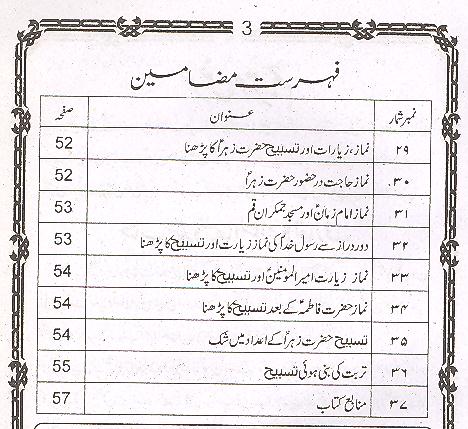 3
فہرست مضامین
نمبر شمار عنوان صفحہ
۲۹ نماز، زیارات اور تسبیح حضرت زہراؑ کا پڑھنا 52
۳۰ نماز حاجت در حضور حضرت زہراؑ 52
۳۱ نماز امام زمانؑ اور مسجد جمکران قم 53
۳۲ دور دراز سے رسول خداؐ کی نماز زیارت اور تسبیح کا پڑھنا 53
۳۳ نماز زیارت امیر المومنینؑ اور تسبیح کا پڑھنا 54
۳۴ نماز حضرت فاطمہؑ کے بعد تسبیح کا پڑھنا 54
۳۵ تسبیح حضرت زہراؑ کے اعداد میں شک 54
۳۶ تربت کی بنی ہوئی تسبیح 55
۳۷ منابع کتاب 57